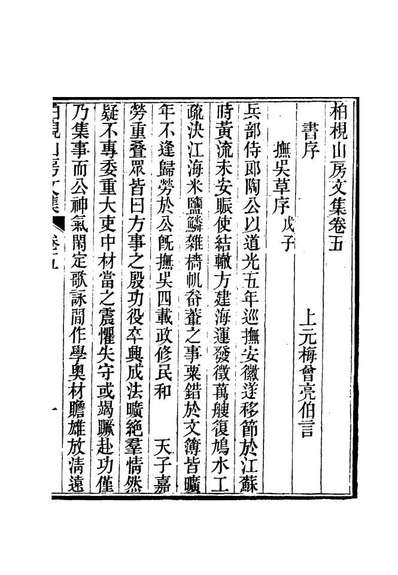 柏梘山房文集卷五
上元梅曾亮伯言
書序
撫吳草序 戊子
兵部侍郎陶公以道光五年巡撫安徽遂移節於江蘇
時黃流未安賑使結轍方建海運發徵萬艘復鳩水工
疏決江海米鹽鱗雜檣帆畚葢之事粟錯於文簿皆曠
年不逢歸勞於公旣撫吳四載政修民和 天子嘉
勞重疊眾皆曰方事之殷功役卒興成法曠絶羣情然
疑不專委重大吏中材當之震懼失守或竭蹶赴功僅
乃集事而公神氣閒定歌詠閒作學奧材贍雄放淸遠
柏梘山房文集 卷五 一